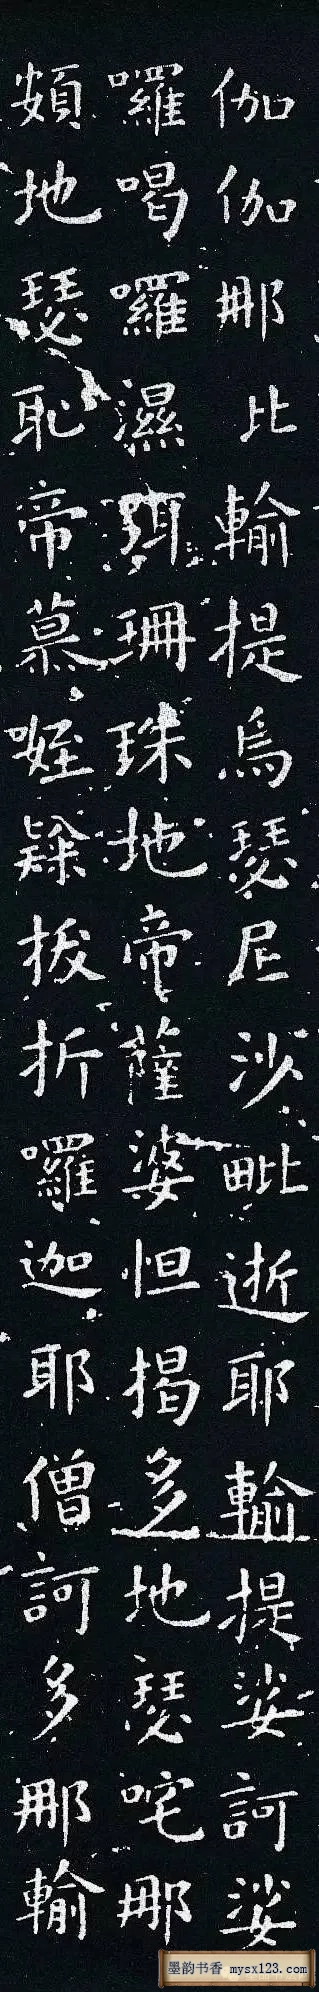 伽伽那比輸提烏瑟尼沙毗逝耶輸提娑訶娑
囉喝囉濕弭珊珠地帝薩婆怛揭多地瑟咤那
頞地瑟恥帝慕隸拔折囉迦耶僧訶多那輸
墨韵书香 mysx123.com